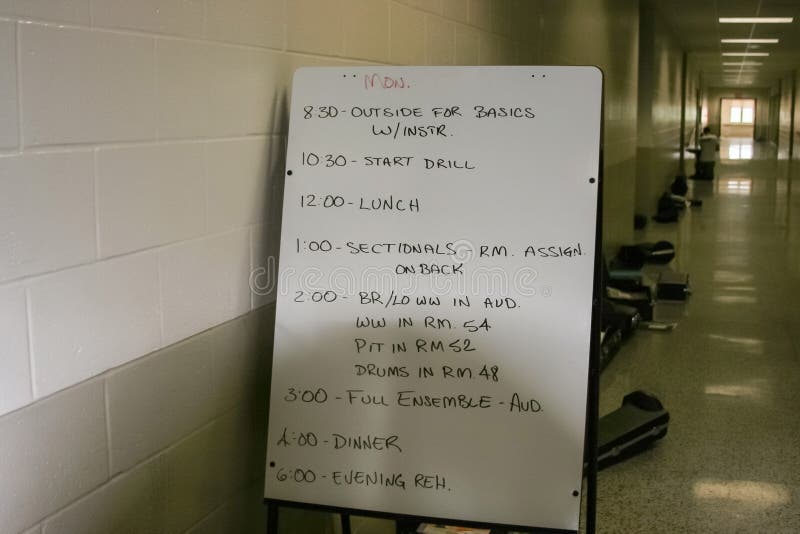 MON.
8:30 - OUTSIDE FOR BASICS
W/INSTR.
10:30 - START DRILL
12:00 - LUNCH
1:00 - SECTIONALS - RM. ASSIGN.
ON BACK
2:00 - BR/LO WW IN AUD.
WW IN RM. 54
PIT IN RM 52
DRUMS IN RM. 48
3:00 - FULL ENSEMBLE - AUD.
4:00 - DINNER
6:00 - EVENING REH.
dreamstime